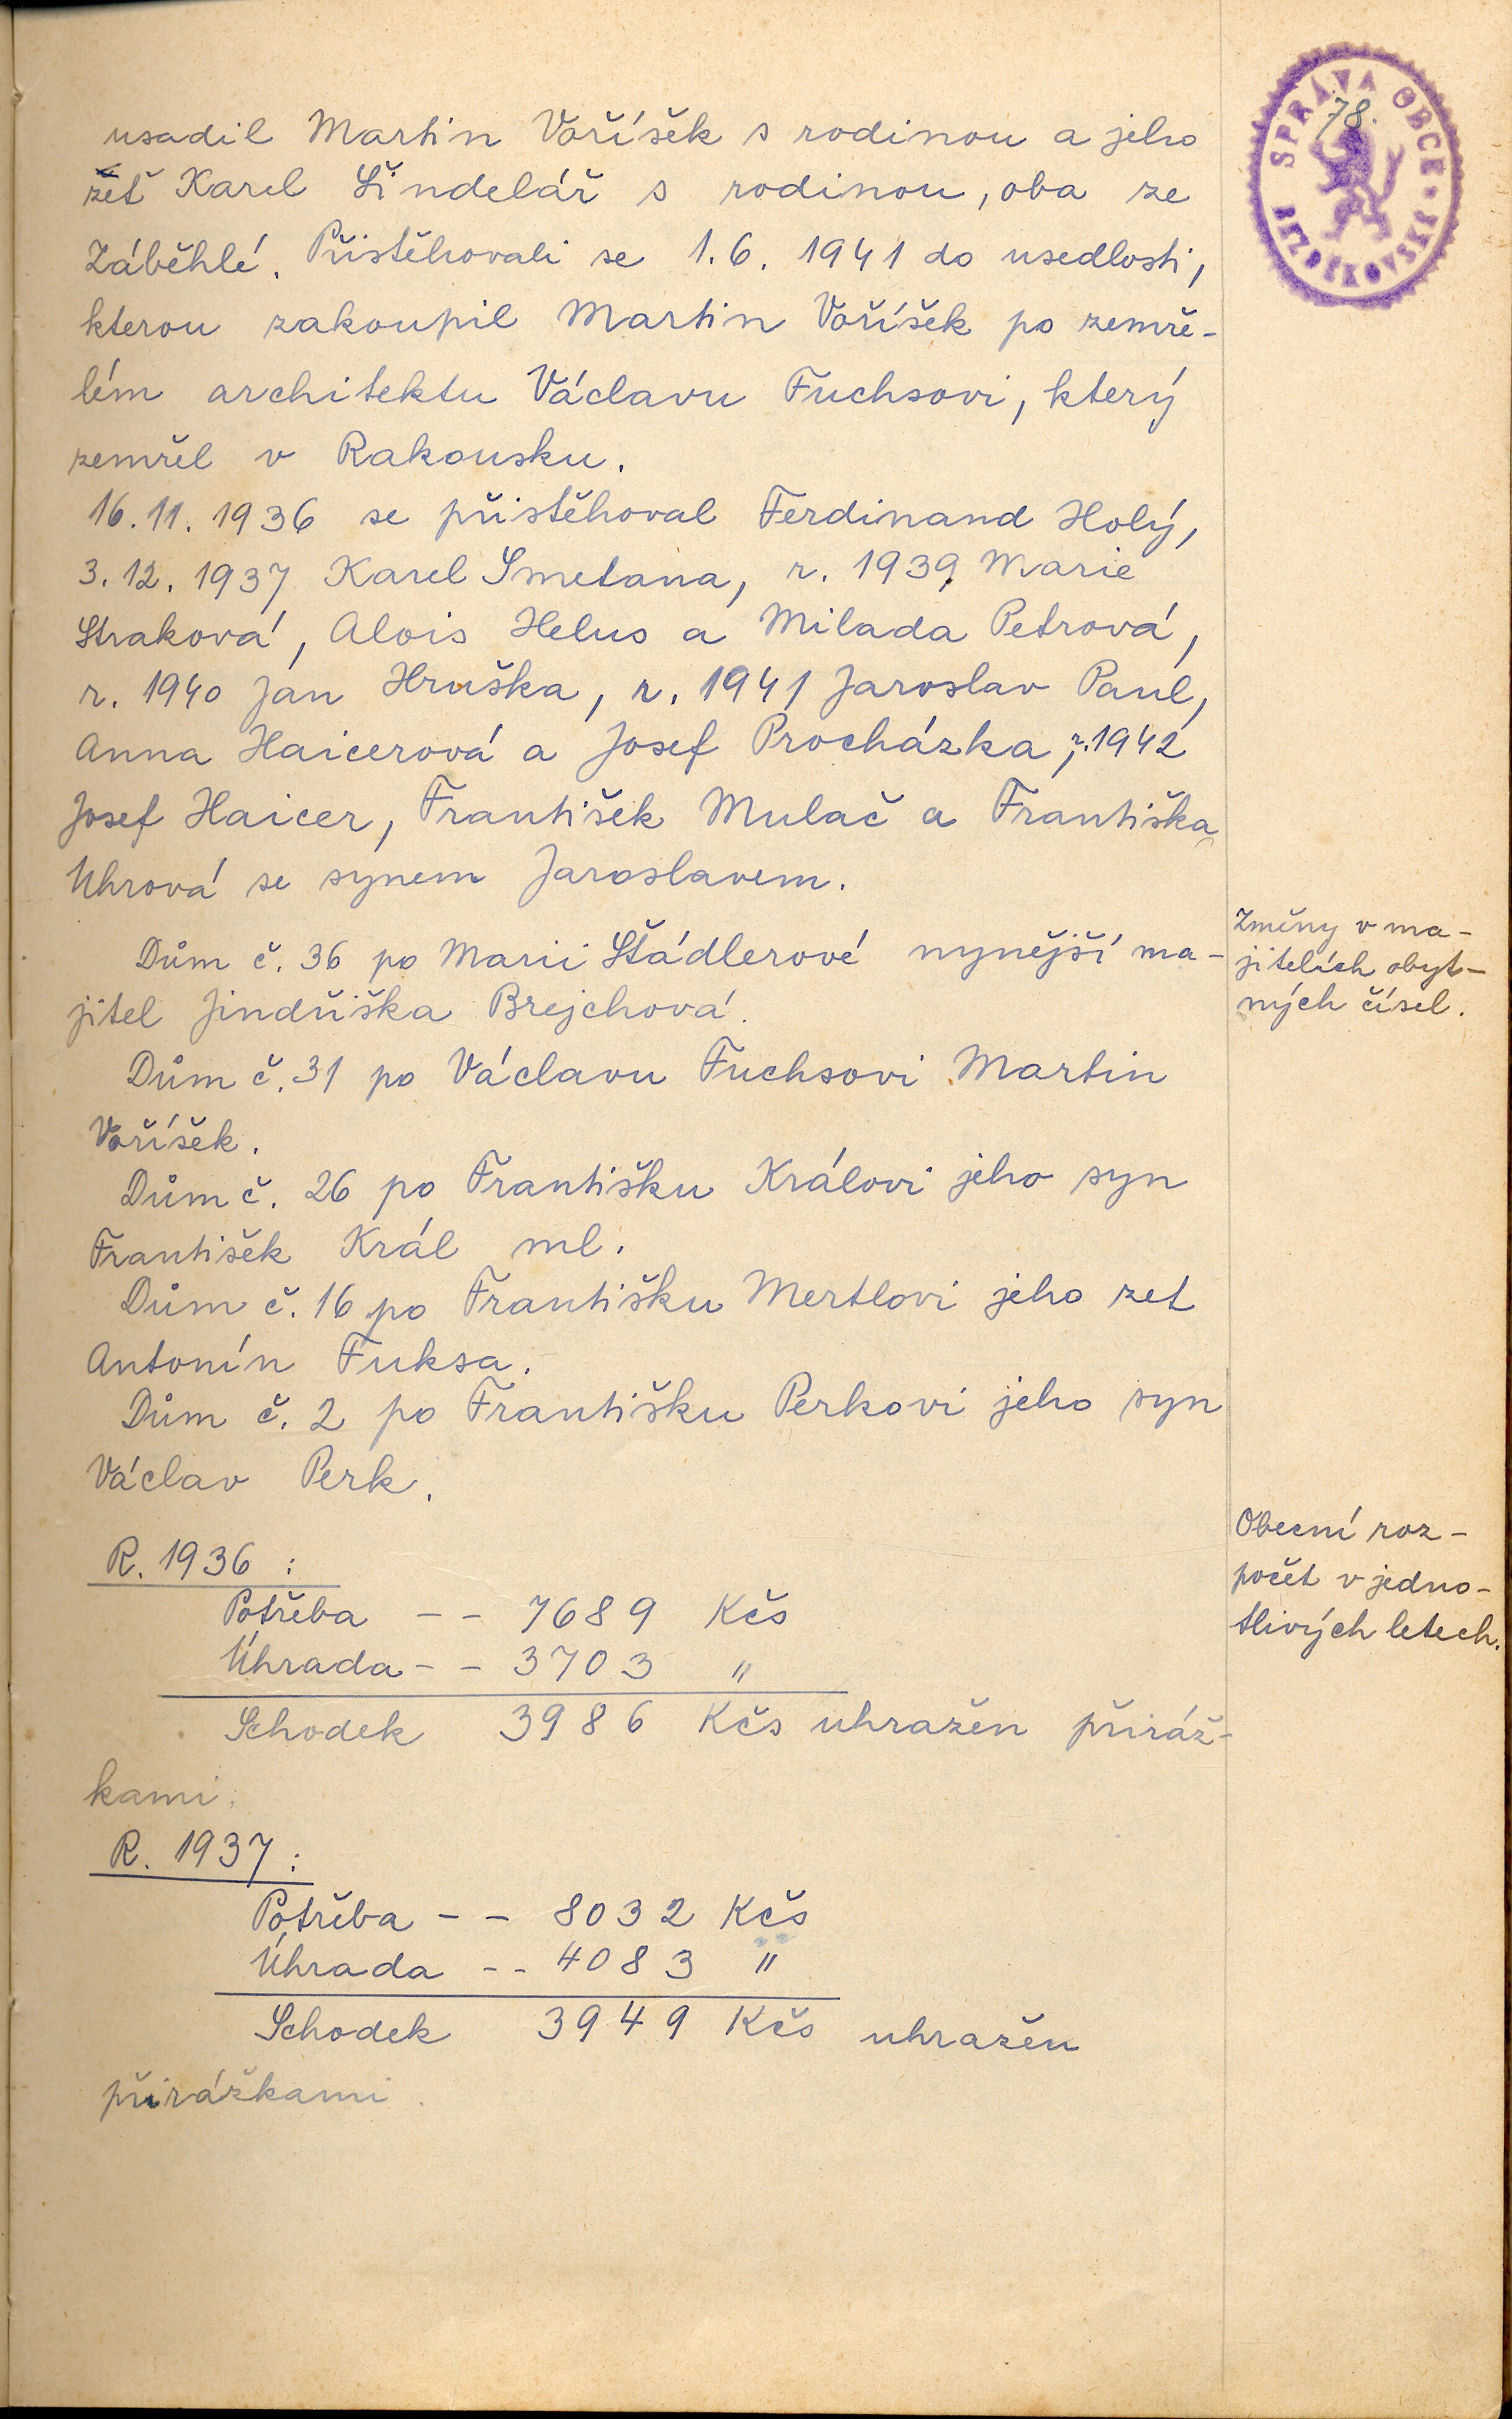 78.
SPRÁVA OBCE
usadil Martin Voříšek s rodinou a jeho
zeť Karel Šindelář s rodinou, oba ze
Záběhlé. Přistěhovali se 1. 6. 1941 do usedlosti,
kterou zakoupil Martin Voříšek po zemře-
lém architektu Václavu Fuchsovi, který
zemřel v Rakousku.
16. 11. 1936 se přistěhoval Ferdinand Holý,
3. 12. 1937 Karel Smetana, r. 1939 Marie
Straková, Alois Helus a Milada Petrová,
r. 1940 Jan Hruška, r. 1941 Jaroslav Paul,
Anna Haicerová a Josef Procházka, r. 1942
Josef Haicer, František Mulač a Františka
Uhrová se synem Jaroslavem.
Změny v ma-
jitelích obyt-
ných čísel.
Dům č. 36 po Marii Štádlerové nynější ma-
jitel Jindřiška Brejchová.
Dům č. 31 po Václavu Fuchsovi Martin
Voříšek.
Dům č. 26 po Františku Královi jeho syn
František Král ml.
Dům č. 16 po Františku Mertlovi jeho zet
Antonín Fuksa.
Dům č. 2 po Františku Perkovi jeho syn
Václav Perk.
Obecní roz-
počet v jedno-
tlivých letech.
R. 1936 :
Potřeba - - 7689 Kčs
Úhrada - - 3703 "
Schodek 3986 Kčs uhražen přiráž-
kami.
R. 1937 :
Potřeba - - 8032 Kčs
Úhrada - - 4083 "
Schodek 3949 Kčs uhražen
přirážkami.